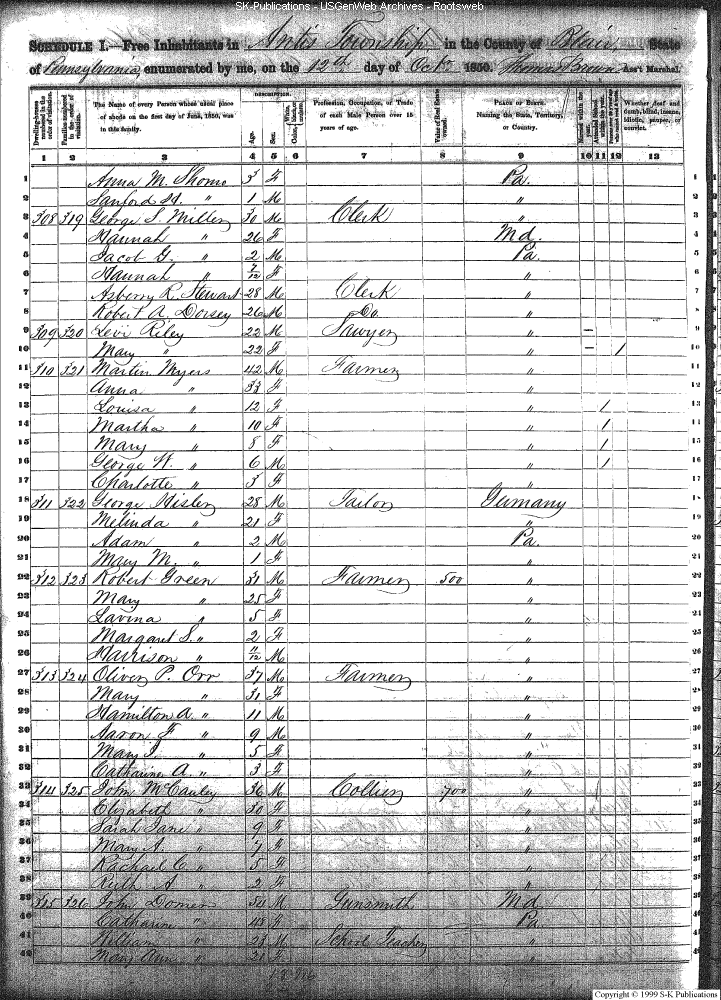 SK-Publications - USGenWeb Archives - Rootsweb
SCHEDULE I.—Free Inhabitants in Antis Township in the County of Blair State
of Pennsylvania enumerated by me, on the 12th day of Octr 1850. Thomas Brown Ass't Marshal.
Dwelling-houses numbered in the order of visitation.
Families numbered in the order of visitation.
The Name of every Person whose usual place of abode on the first day of June, 1850, was in this family.
DESCRIPTION.
Age.
Sex.
Color, White, black, or mulatto.
Profession, Occupation, or Trade of each Male Person over 15 years of age.
Value of Real Estate owned.
PLACE OF BIRTH. Naming the State, Territory, or Country.
Married within the year.
Attended School within the year.
Whether deaf and dumb, blind, insane, idiotic, pauper, or convict.
1 2 3 4 5 6 7 8 9 10 11 12 13
1 Anna M. Shomo 3 F Pa. 1
2 Sanford H. " 1 M " 2
3 308 319 George S. Miller 30 M Clerk " 3
4 Hannah " 26 F Md. 4
5 Jacob G. " 2 M Pa. 5
6 Hannah " 7/12 F " 6
7 Asberry R. Stewart 28 M Clerk " 7
8 Robert A. Dorsey 26 M Do " 8
9 309 320 Levi Riley 22 M Sawyer " – 9
10 Mary " 22 F " – / 10
11 310 321 Martin Myers 42 M Farmer " 11
12 Anna " 33 F " 12
13 Louisa " 12 F " / 13
14 Martha " 10 F " / 14
15 Mary " 8 F " / 15
16 George W. " 6 M " / 16
17 Charlotte " 3 F " 17
18 311 322 George Hisler 28 M Tailor Germany 18
19 Melinda " 21 F " 19
20 Adam " 2 M Pa. 20
21 Mary M. " 1 F " 21
22 312 323 Robert Green 31 M Farmer 500 " 22
23 Mary " 25 F " 23
24 Lavina " 5 F " 24
25 Margaret S. " 2 F " 25
26 Harrison " 11/12 M " 26
27 313 324 Oliver P. Orr 37 M Farmer " 27
28 Mary " 31 F " 28
29 Hamilton A. " 11 M " 29
30 Aaron F " 9 M " 30
31 Mary J. " 5 F " 31
32 Catharine A " 3 F " 32
33 314 325 John McCauley 36 M Collier 700 " 33
34 Elizabeth " 30 F " 34
35 Sarah Jane " 9 F " 35
36 Mary A. " 7 F " 36
37 Rachael C. " 5 F " 37
38 Ruth A " 2 F " 38
39 315 326 John Domer 54 M Gunsmith Md 39
40 Catharine " 48 F Pa 40
41 William " 23 M School Teacher " 41
42 Mary Ann " 21 F " 42
Copyright © 1999 S-K Publications